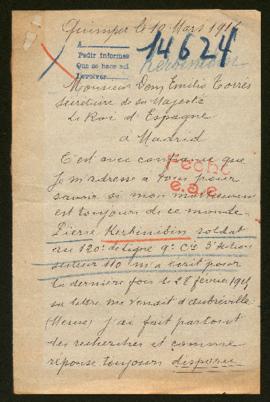 Quimper le 10 Mars 191
14624
A
Pedir informes
Que se hace así
Devolver
Monsieur Dom Emilio Torrès
Secretaire de sa Majesté
Le Roi d'Espagne
à Madrid
C'est avec confiance que
Je m'adresse à vous pour
savoir si mon
est toujours de ce monde
Pierre soldat
au 120e de ligne 9e Cie 3e section
secteur 110 m'a écrit pour
la dernière fois le 28 février 191
sa lettre me venait d'Aubréville
(Meuse) J'ai fait partout
des recherches et comme
réponse toujours disparu